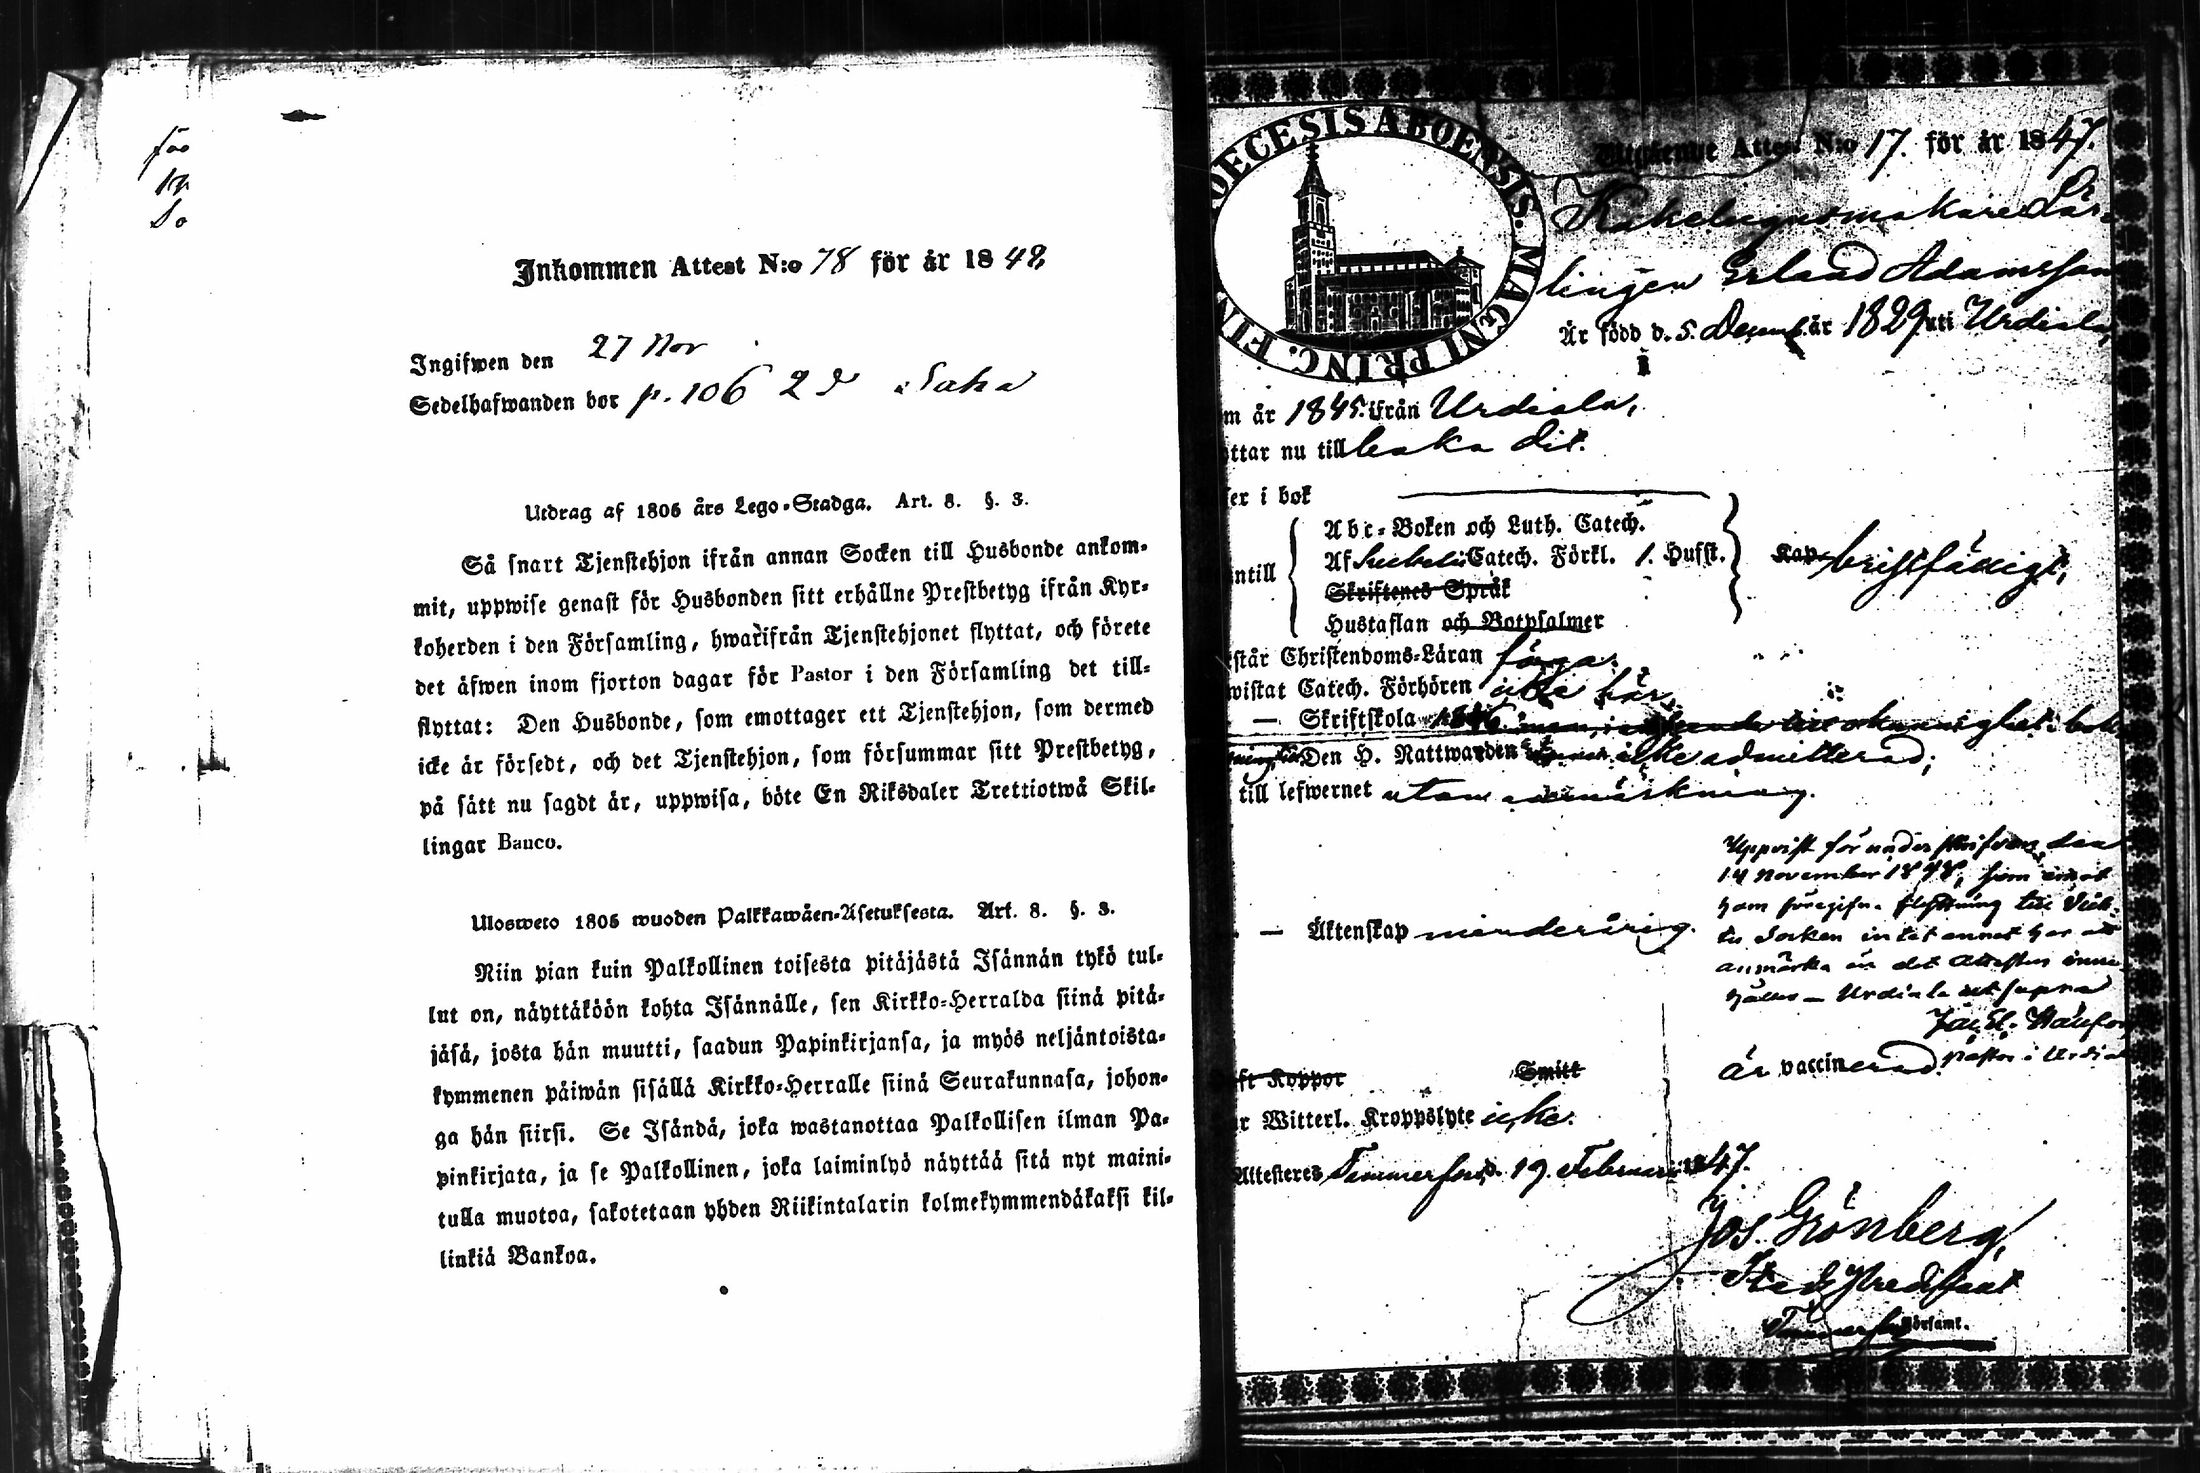 för
Inkommen Attest N:o 78 för år 1848
Ingifwen den 27 Nov
Sedelhafwanden bor p. 106 2 d Saha
Utdrag af 1805 års Lego-Stadga. Art. 8. §. 3.
Så snart Tjenstehjon ifrån annan Socken till Husbonde ankom-
mit, uppwise genast för Husbonden sitt erhållne Prestbetyg ifrån Kyr-
koherden i den Församling, hwarifrån Tjenstehjonet flyttat, och förete
det äfwen inom fjorton dagar för Pastor i den Församling det till-
flyttat: Den Husbonde, som emottager ett Tjenstehjon, som dermed
icke är försedt, och det Tjenstehjon, som försummar sitt Prestbetyg,
på sätt nu sagdt är, uppwisa, böte En Riksdaler Trettiotwå Skil-
lingar Banco.
Ulosweto 1805 wuoden Palkkawäen-Asetuksesta. Art. 8. §. 3.
Niin pian kuin Palkollinen toisesta pitäjästä Isännän tykö tul-
lut on, näyttäköön kohta Isännälle, sen Kirkko-Herralda siinä pitä-
jäsä, josta hän muutti, saadun Papinkirjansa, ja myös neljäntoista-
kymmenen päiwän sisällä Kirkko-Herralle siinä Seurakunnasa, johon-
ga hän siirsi. Se Isändä, joka wastanottaa Palkollisen ilman Pa-
pinkirjata, ja se Palkollinen, joka laiminlyö näyttää sitä nyt maini-
tulla muotoa, sakotetaan yhden Riikintalarin kolmekymmendäkaksi kil-
linkiä Bankoa.
DIOECESIS ABOENSIS. MAGNI PRINC. FIN
Utgående Attest N:o 17. för år 1847.
Kakelugnsmakare Lär-
lingen Erland Adamsson
Är född d. 5. Decemb. år 1829 uti Urdiala,
m år 1845. ifrån Urdiala,
ttar nu till baka dit.
ser i bok
Abc-Boken och Luth. Catech.
ntill Af Svebelii Catech. Förkl. 1. Hufst. Kap bristfälligt,
Skriftenes Språk
Hustaflan och Botpsalmer
står Christendoms-Läran föga.
wistat Catech. Förhören icke här.
— Skriftskola 1846 okunnighet i bok
Den H. Nattwarden icke admitterad;
till lefwernet utan anmärkning.
Uppvist för underskrifven den
14 November 1848, som emot
hans föregifn. flyttning till
Socken intet annat har att
anmärka än det Attesten inne-
håller — Urdiala ut supra
Pastor i Urdiala
— Äktenskap minderårig.
ft Koppor Smitt är vaccinerad.
r Witterl. Kroppslyte icke.
Attesteres Tammerfors d. 19. Februari 1847.
Jos. Grönberg,
Stads Predikant
Tammerfors Församl.